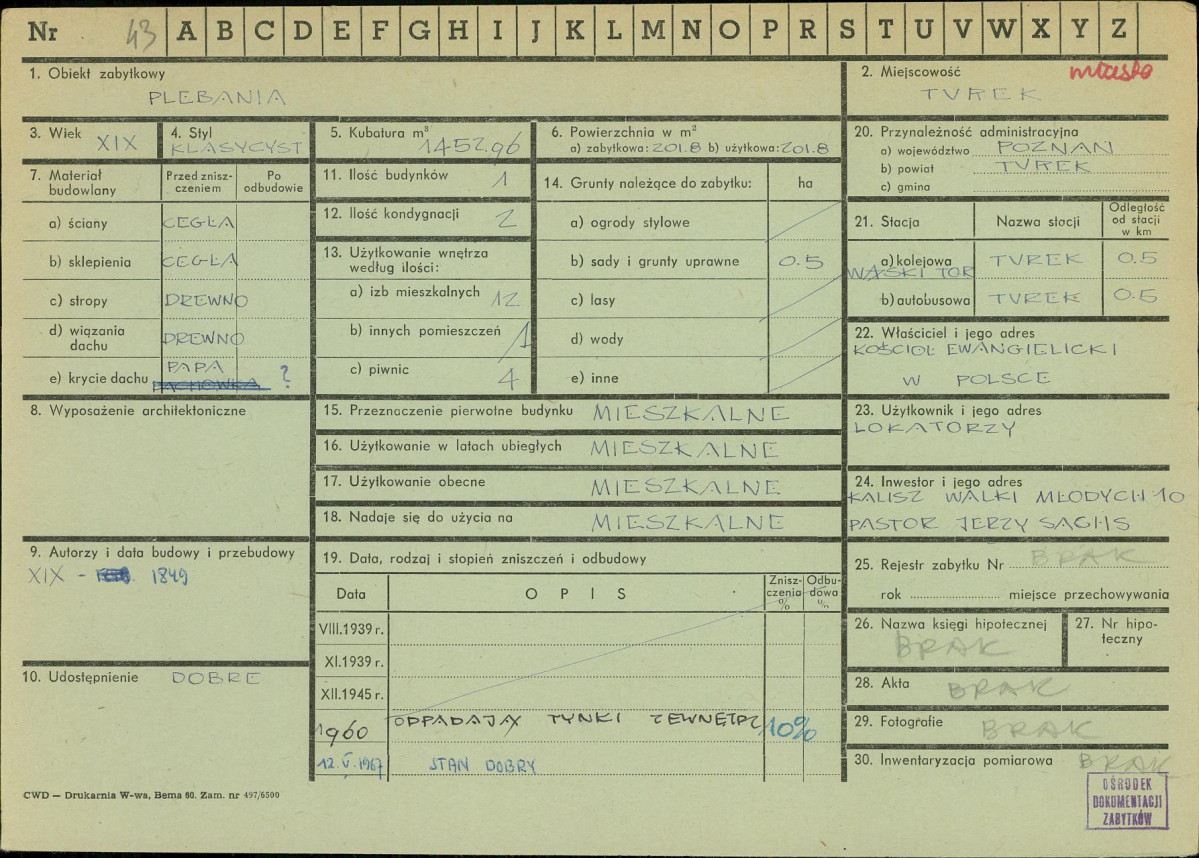 Nr 43 A B C D E F G H I J K L M N O P R S T U V W X Y Z
1. Obiekt zabytkowy
PLEBANIA
2. Miejscowość miasto
TUREK
3. Wiek XIX
4. Styl
KLASYCYST
5. Kubatura m³
1452.96
6. Powierzchnia w m²
a) zabytkowa: 201.8 b) użytkowa: 201.8
7. Materiał budowlany
Przed zniszczeniem
Po odbudowie
a) ściany CEGŁA
b) sklepienia CEGŁA
c) stropy DREWNO
d) wiązania dachu DREWNO
e) krycie dachu PAPA
DACHÓWKA ?
8. Wyposażenie architektoniczne
9. Autorzy i data budowy i przebudowy
XIX – 1849
10. Udostępnienie DOBRE
11. Ilość budynków 1
12. Ilość kondygnacji 2
13. Użytkowanie wnętrza
według ilości:
a) izb mieszkalnych 12
b) innych pomieszczeń 1
c) piwnic 4
14. Grunty należące do zabytku: ha
a) ogrody stylowe
b) sady i grunty uprawne 0.5
c) lasy
d) wody
e) inne
15. Przeznaczenie pierwotne budynku MIESZKALNE
16. Użytkowanie w latach ubiegłych MIESZKALNE
17. Użytkowanie obecne MIESZKALNE
18. Nadaje się do użycia na MIESZKALNE
19. Data, rodzaj i stopień zniszczeń i odbudowy
Data OPIS Zniszczenia % Odbudowa %
VIII.1939 r.
XI.1939 r.
XII.1945 r.
1960 ODPADAJĄ TYNKI ZEWNĘTRZ 10%
12.V.1967 STAN DOBRY
20. Przynależność administracyjna
a) województwo POZNAŃ
b) powiat TUREK
c) gmina
21. Stacja Nazwa stacji Odległość od stacji w km
a) kolejowa TUREK 0.5
WĄSKI TOR
b) autobusowa TUREK 0.5
22. Właściciel i jego adres
KOŚCIOŁ EWANGIELICKI
W POLSCE
23. Użytkownik i jego adres
LOKATORZY
24. Inwestor i jego adres
KALISZ WALKI MŁODYCH 10
PASTOR JERZY SACHS
25. Rejestr zabytku Nr BRAK
rok miejsce przechowywania
26. Nazwa księgi hipotecznej
BRAK
27. Nr hipoteczny
28. Akta BRAK
29. Fotografie BRAK
30. Inwentaryzacja pomiarowa BRAK
OŚRODEK
DOKUMENTACJI
ZABYTKÓW
CWD — Drukarnia W-wa, Bema 60. Zam. nr 497/6500